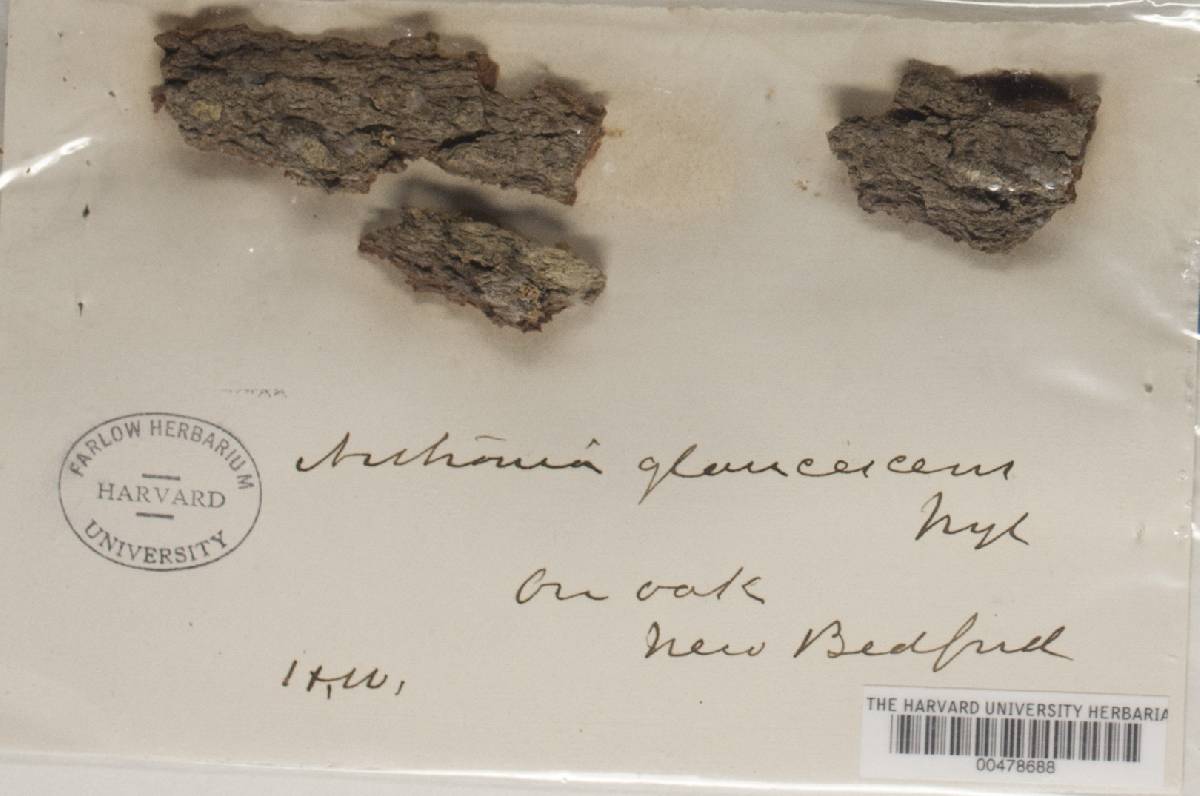 FARLOW HERBARIUM
HARVARD
UNIVERSITY
Arthonia glaucescens
Nyl
On oak
New Bedford
H.W.
THE HARVARD UNIVERSITY HERBARIA
00478688